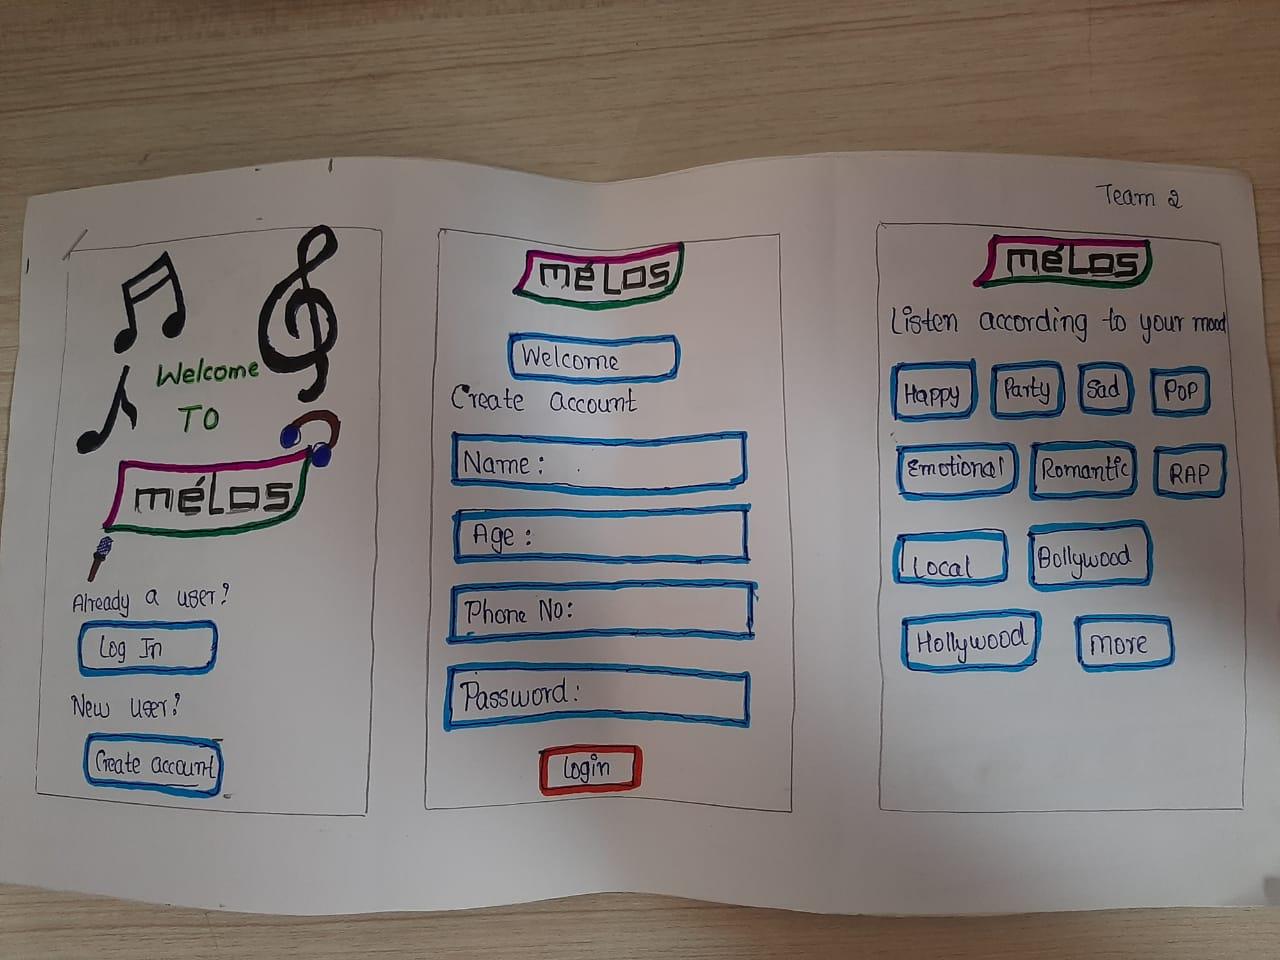 Team 2
Welcome
TO
méLos
Already a user?
Log In
New user?
Create account
méLos
Welcome
Create account
Name:
Age:
Phone No:
Password:
login
méLos
Listen according to your mood
Happy Party Sad POP
Emotional Romantic RAP
Local Bollywood
Hollywood more